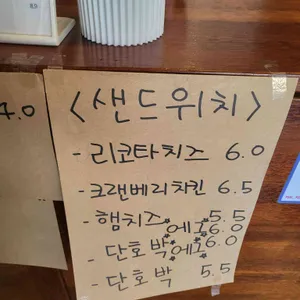 4.0
<샌드위치>
- 리코타치즈 6.0
- 크랜베리치킨 6.5
- 햄치즈 5.5
에그 6.0
- 단호박에그 6.0
- 단호박 5.5